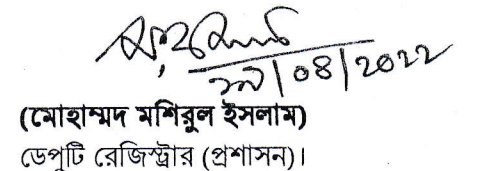 ২৭/০৪/২০২২
(মোহাম্মদ মশিরুল ইসলাম)
ডেপুটি রেজিস্ট্রার (প্রশাসন)।